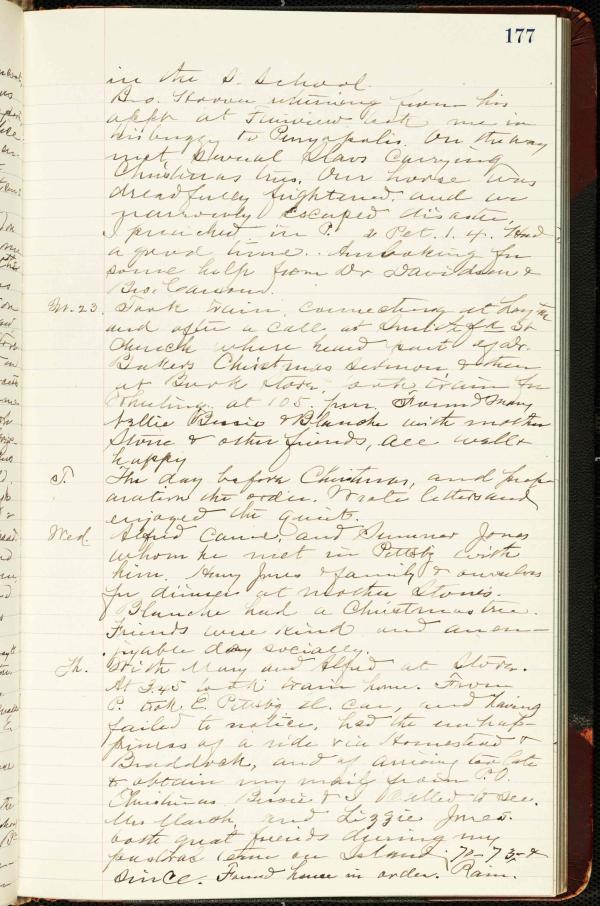 177
in the S. School.
Bro. Hoover returning from his
appt at Fairview ask me in
his buggy to Perryopolis. On the way
met several Slavs carrying
Christmas trees. Our horse was
dreadfully frightened, and we
narrowly escaped disaster.
I preached in P. 2 Pet. 1.4. Had
a good time. Am looking for
some help from Dr Davidson &
Bro.
M. 23. Took train, connecting at Layton
and after a call at Smithfield St
Church where heard part of Dr.
Bakers Christmas sermon, & then
at Book store, took train for
at 1 05. p.m. Found Mary
Nellie Bessie & Blanche with mother
Stone & other friends, all well &
happy
T. The day before Christmas, and prep-
aration the order. Wrote letters and
enjoyed the quiet.
Wed. Alfred came, and Sumner Jones
whom he met in Pittsbg with
him. Henry Jones & family & ourselves
for dinner at mother Stones.
Blanche had a Christmas tree.
Friends were kind and an en-
joyable day socially.
Th. With Mary and Alfred at Store.
At 3.45 took train home. From
P. took E. Pittsbg el. car, and having
failed to notice, had the unhap-
piness of a ride via Homestead &
Braddock, and of arriving too late
to obtain my mail from P.O.
Christmas Bessie & I called to see
Mrs Marsh and Lizzie Jones.
both great friends during my
pastoral term on Island, 70-73- &
since. Found house in order. Rain.